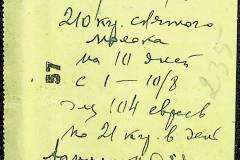 210 кг. свежого
мяса
на 10 дней
с 1 – 10/8
для 104 евреев
по 21 кг. в день
57
235